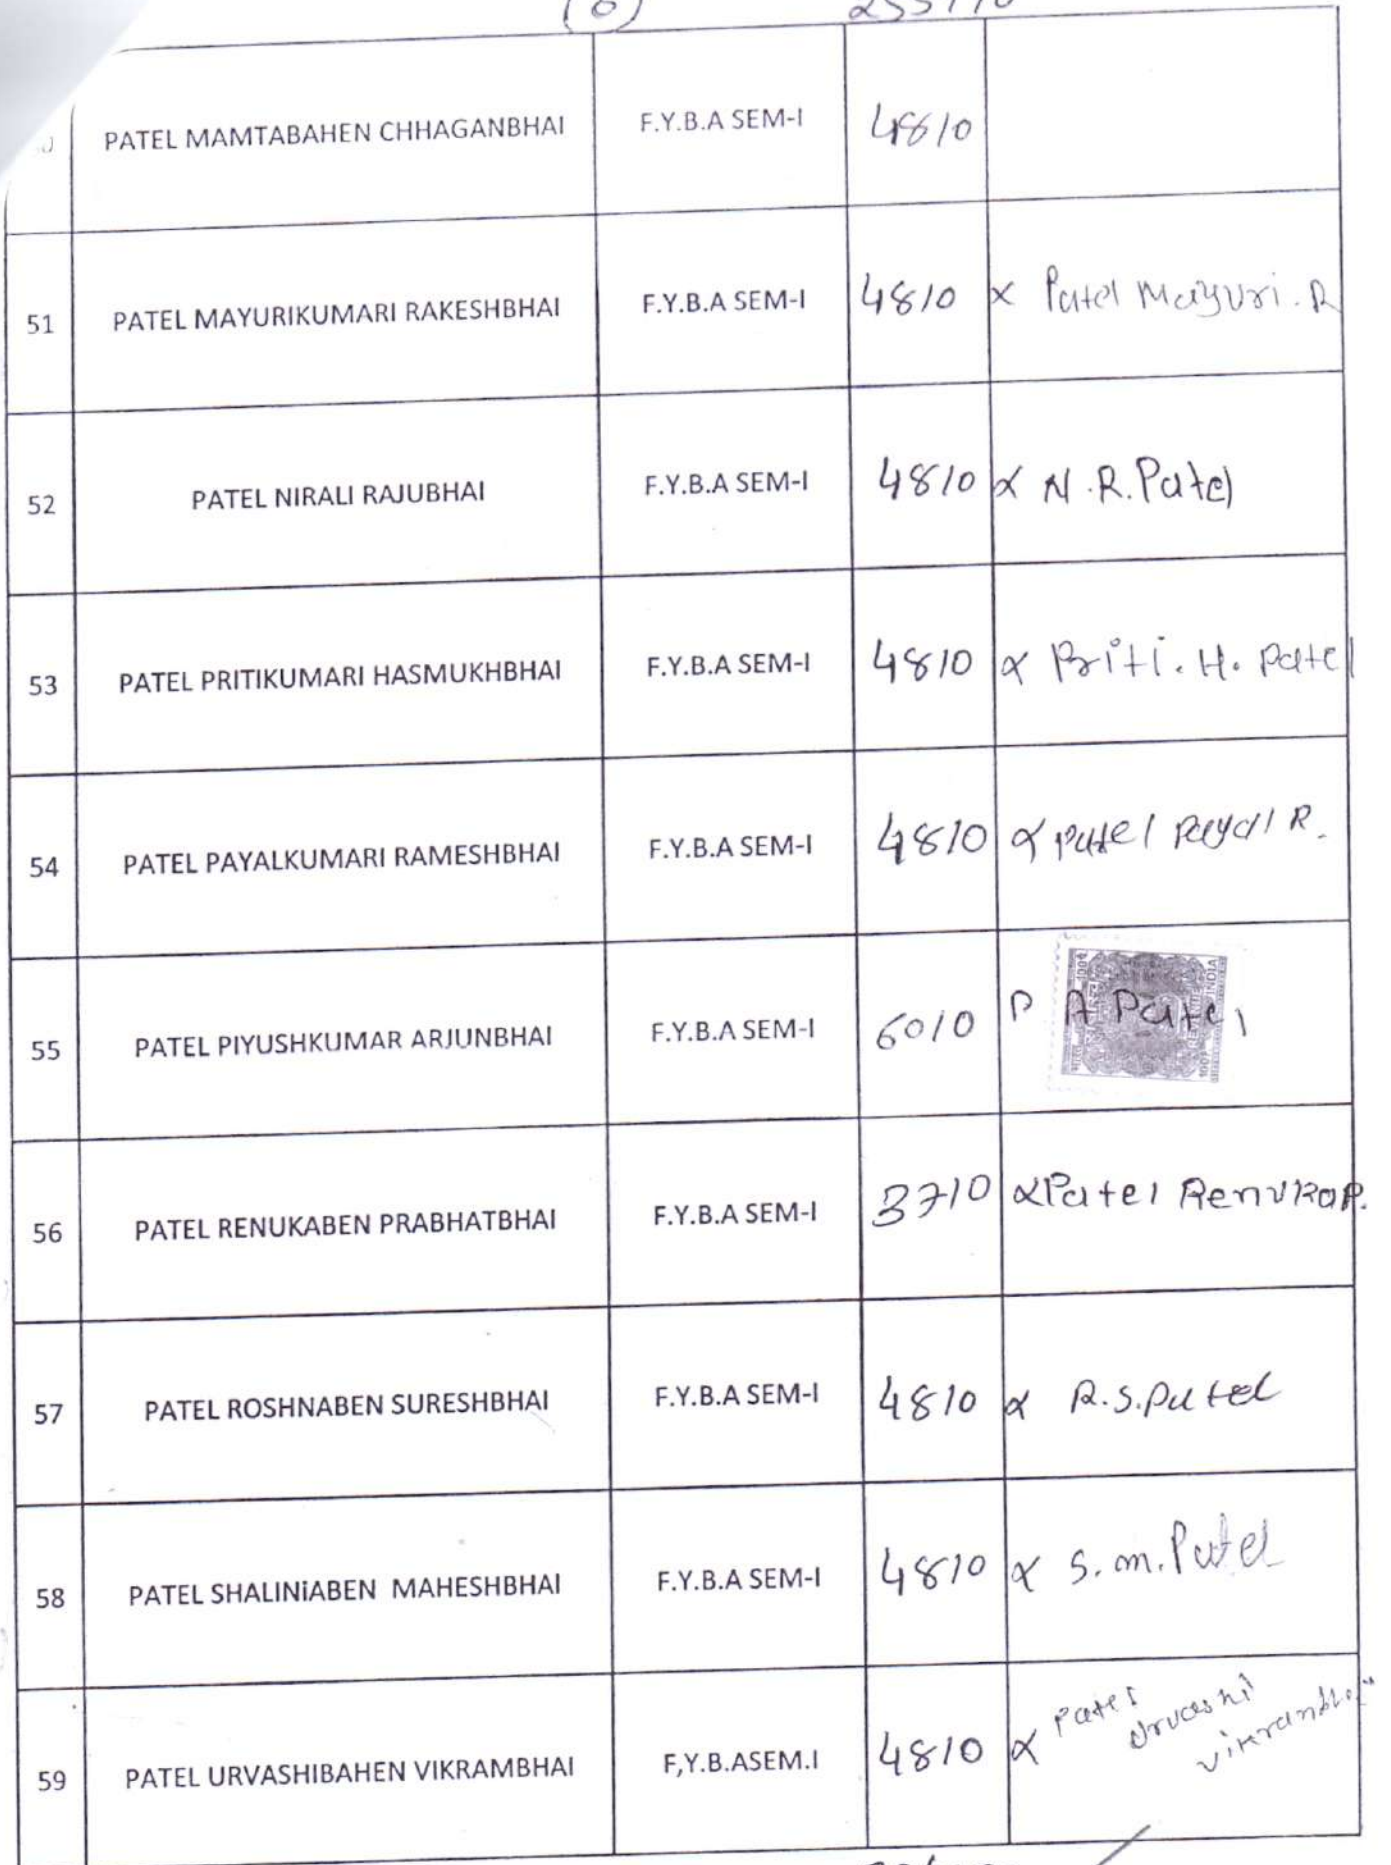 6
PATEL MAMTABAHEN CHHAGANBHAI F.Y.B.A SEM-I 4810
51 PATEL MAYURIKUMARI RAKESHBHAI F.Y.B.A SEM-I 4810 x Patel Mayuri. R
52 PATEL NIRALI RAJUBHAI F.Y.B.A SEM-I 4810 x N.R.Patel
53 PATEL PRITIKUMARI HASMUKHBHAI F.Y.B.A SEM-I 4810 x Priti. H. Patel
54 PATEL PAYALKUMARI RAMESHBHAI F.Y.B.A SEM-I 4810 x patel payal R.
55 PATEL PIYUSHKUMAR ARJUNBHAI F.Y.B.A SEM-I 6010 P A Patel
INDIA
56 PATEL RENUKABEN PRABHATBHAI F.Y.B.A SEM-I 3710 x Patel Renuka P.
57 PATEL ROSHNABEN SURESHBHAI F.Y.B.A SEM-I 4810 x R.S.Patel
58 PATEL SHALINiABEN MAHESHBHAI F.Y.B.A SEM-I 4810 x S.m.Patel
59 PATEL URVASHIBAHEN VIKRAMBHAI F,Y.B.ASEM.I 4810 x Patel